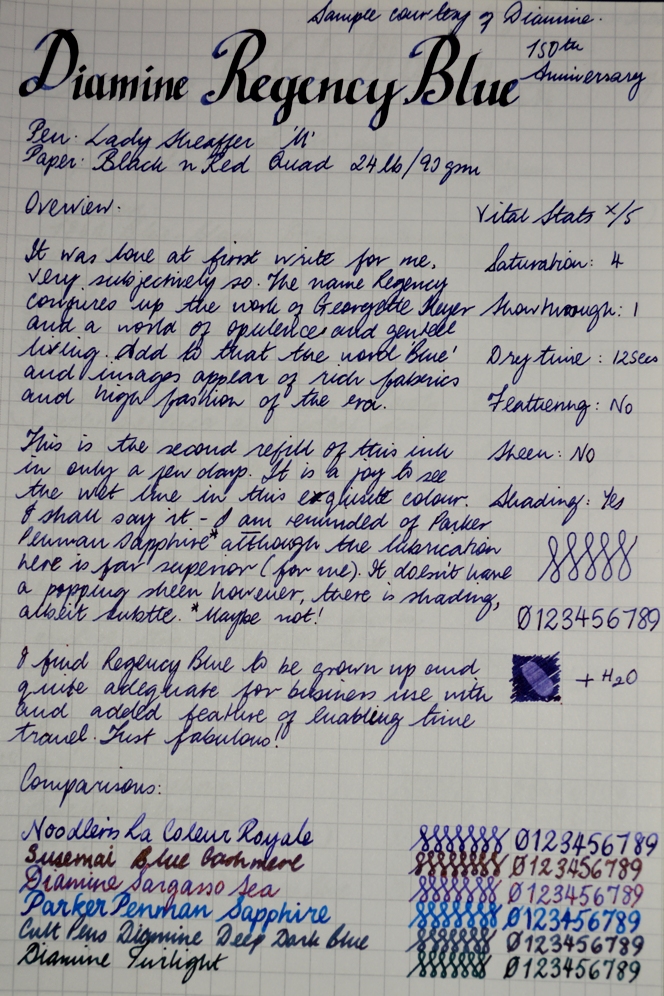 Sample courtesy of Diamine.
150th
Anniversary
Diamine Regency Blue
Pen: Lady Sheaffer 'M'
Paper: Black n Red Quad 24lb/90gsm
Overview.
It was love at first write for me,
very subjectively so. The name Regency
conjures up the work of Georgette Heyer
and a world of opulence and genteel
living. Add to that the word 'Blue'
and images appear of rich fabrics
and high fashion of the era.
This is the second refill of this ink
in only a few days. It is a joy to see
the wet line in this exquisite colour.
I shall say it - I am reminded of Parker
Penman Sapphire* although the lubrication
here is far superior (for me). It doesn't have
a popping sheen however, there is shading,
albeit subtle. *Maybe not!
I find Regency Blue to be grown up and
quite adequate for business use with
and added feature of enabling time
travel. Just fabulous!
Vital Stats x/5
Saturation: 4
Showthrough: 1
Dry time: 12secs
Feathering: No
Sheen: No
Shading: Yes
0123456789
+ H2O
Comparisons:
Noodlers La Coleur Royale 0123456789
Susemai Blue Cashmere 0123456789
Diamine Sargasso Sea 0123456789
Parker Penman Sapphire 0123456789
Cult Pens Diamine Deep Dark Blue 0123456789
Diamine Twilight 0123456789